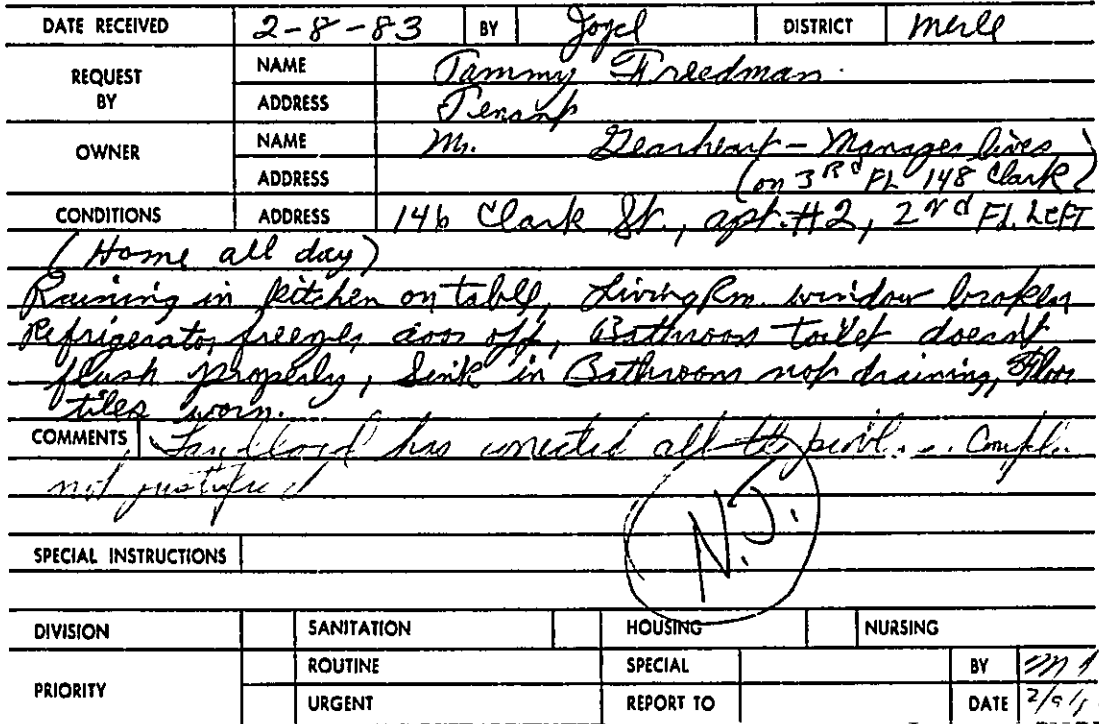 DATE RECEIVED 2-8-83 BY Joyel DISTRICT Merle
REQUEST BY NAME Tammy Freedman
ADDRESS Tenant
OWNER NAME Mr. Gearheart - Manager lives
ADDRESS (on 3Rd FL 148 Clark)
CONDITIONS ADDRESS 146 Clark St., apt. #2, 2nd FL. LEFT
(Home all day)
Raining in Kitchen on table, Living Rm. window broken
Refrigerator freezer door off, Bathroom toilet doesnt
flush properly, Sink in Bathroom not draining, Floor
tiles worn.
COMMENTS Landlord has corrected all the Compl.
not justified
N.J.
SPECIAL INSTRUCTIONS
DIVISION SANITATION HOUSING NURSING
PRIORITY ROUTINE SPECIAL BY
URGENT REPORT TO DATE 2/9/